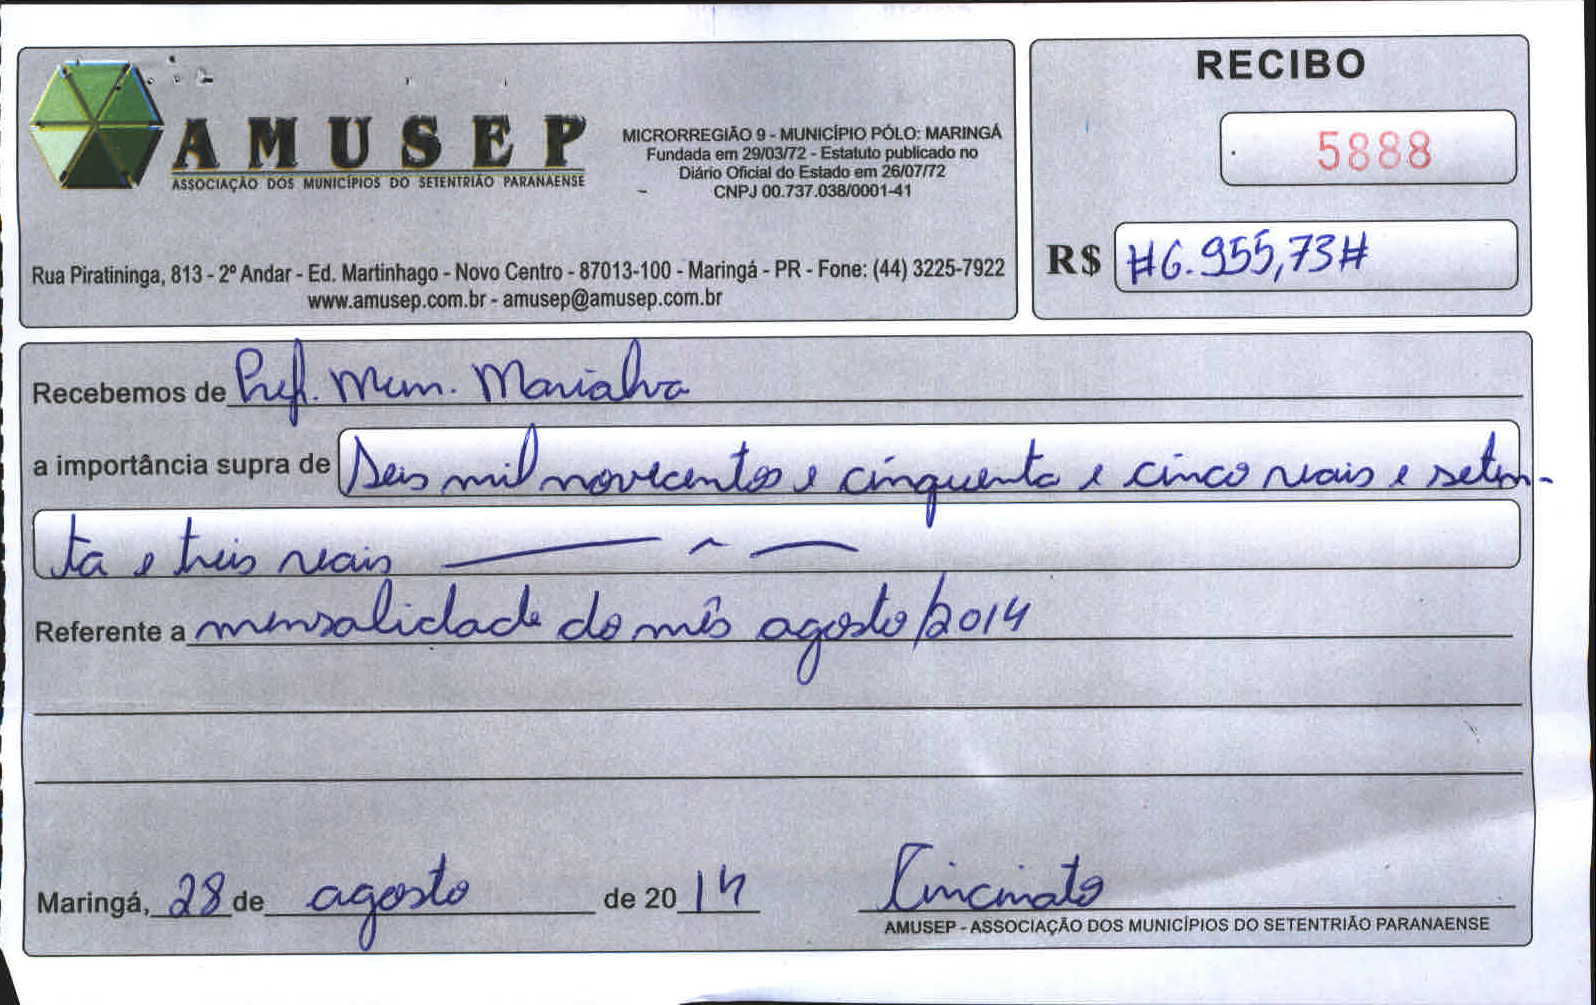 AMUSEP
ASSOCIAÇÃO DOS MUNICÍPIOS DO SETENTRIÃO PARANAENSE
MICRORREGIÃO 9 - MUNICÍPIO PÓLO: MARINGÁ
Fundada em 29/03/72 - Estatuto publicado no
Diário Oficial do Estado em 26/07/72
CNPJ 00.737.038/0001-41
Rua Piratininga, 813 - 2º Andar - Ed. Martinhago - Novo Centro - 87013-100 - Maringá - PR - Fone: (44) 3225-7922
www.amusep.com.br - amusep@amusep.com.br
RECIBO
5888
R$ #6.955,73#
Recebemos de Pref. Mun. Marialva
a importância supra de Seis mil novecentos e cinquenta e cinco reais e seten-
ta e treis reais
Referente a mensalidade do mês agosto/2014
Maringá, 28 de agosto de 2014
Cincinato
AMUSEP - ASSOCIAÇÃO DOS MUNICÍPIOS DO SETENTRIÃO PARANAENSE